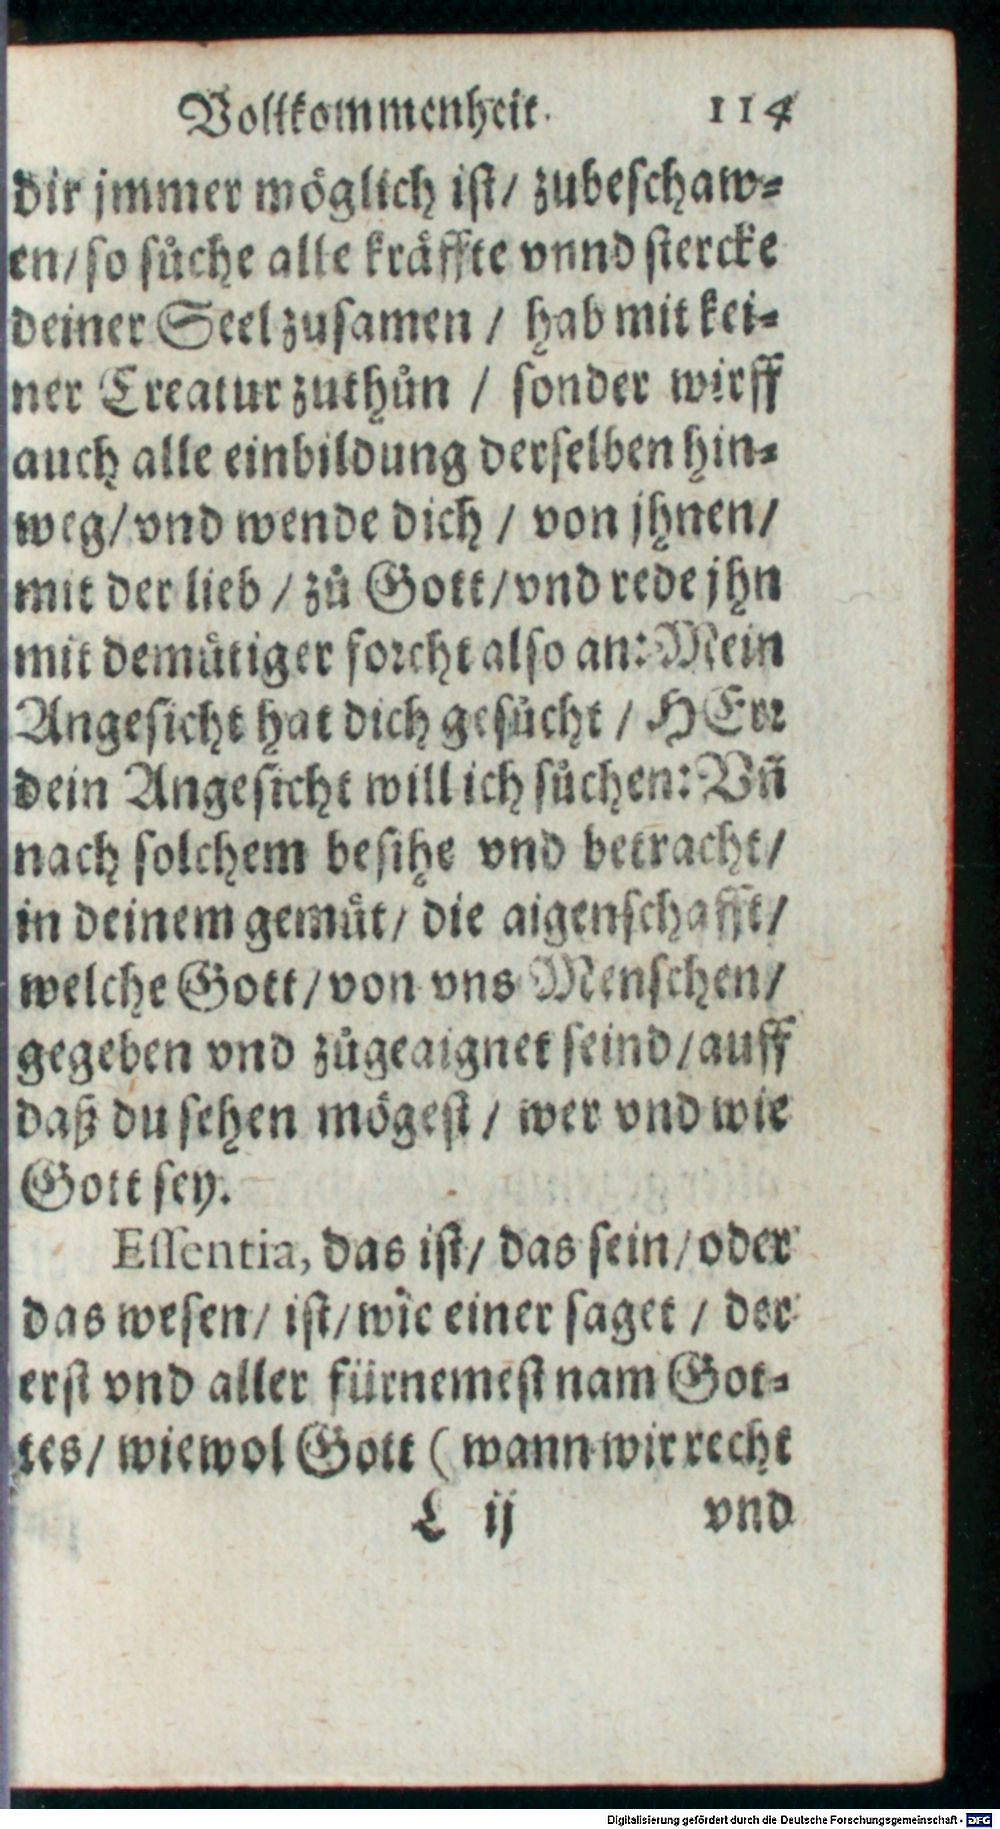 Vollkommenheit. 114
dir jmmer möglich ist/ zubeschaw-
en/ so suͦche alle kräffte vnnd stercke
deiner Seel zusamen / hab mit kei-
ner Creatur zuthuͦn / sonder wirff
auch alle einbildung derselben hin-
weg/ vnd wende dich / von jhnen/
mit der lieb / zuͦ Gott/ vnd rede jhn
mit demuͤtiger forcht also an: Mein
Angesicht hat dich gesuͦcht / HErr
dein Angesicht will ich suͦchen: Vñ
nach solchem besihe vnd betracht/
in deinem gemuͤt/ die aigenschafft/
welche Gott/ von vns Menschen/
gegeben vnd zuͦgeaignet seind/ auff
daß du sehen mögest / wer vnd wie
Gott sey.
Essentia, das ist/ das sein/ oder
das wesen/ ist/ wie einer saget / der
erst vnd aller fürnemest nam Got-
tes/ wiewol Gott ( wann wir recht
L ij vnd
Digitalisierung gefördert durch die Deutsche Forschungsgemeinschaft - DFG